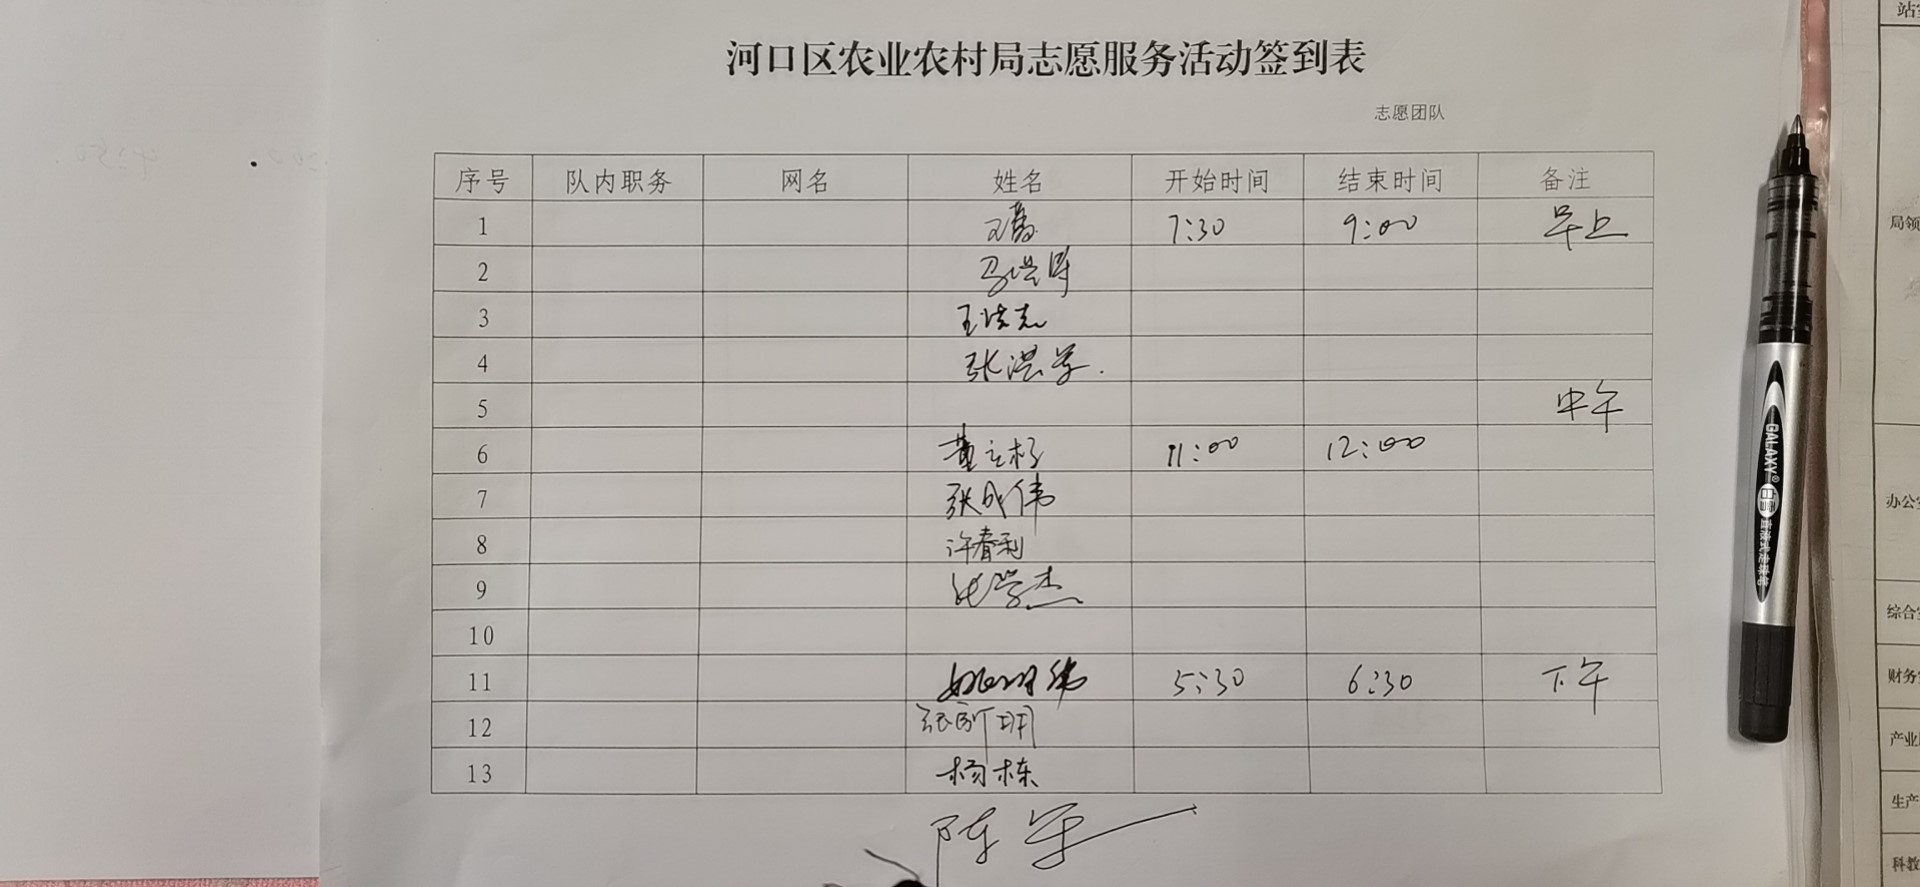 河口区农业农村局志愿服务活动签到表
志愿团队
序号 队内职务 网名 姓名 开始时间 结束时间 备注
1 7:30 9:00 早上
2
3
4 张洪
5 中午
6 11:00 12:00
7 张成伟
8 许春利
9 杰
10
11 5:30 6:30 下午
12
13 杨栋
陈军
GALAXY® 白雪 直液式走珠笔
站
局领
办公室
综合
财务
产业
生产
科教